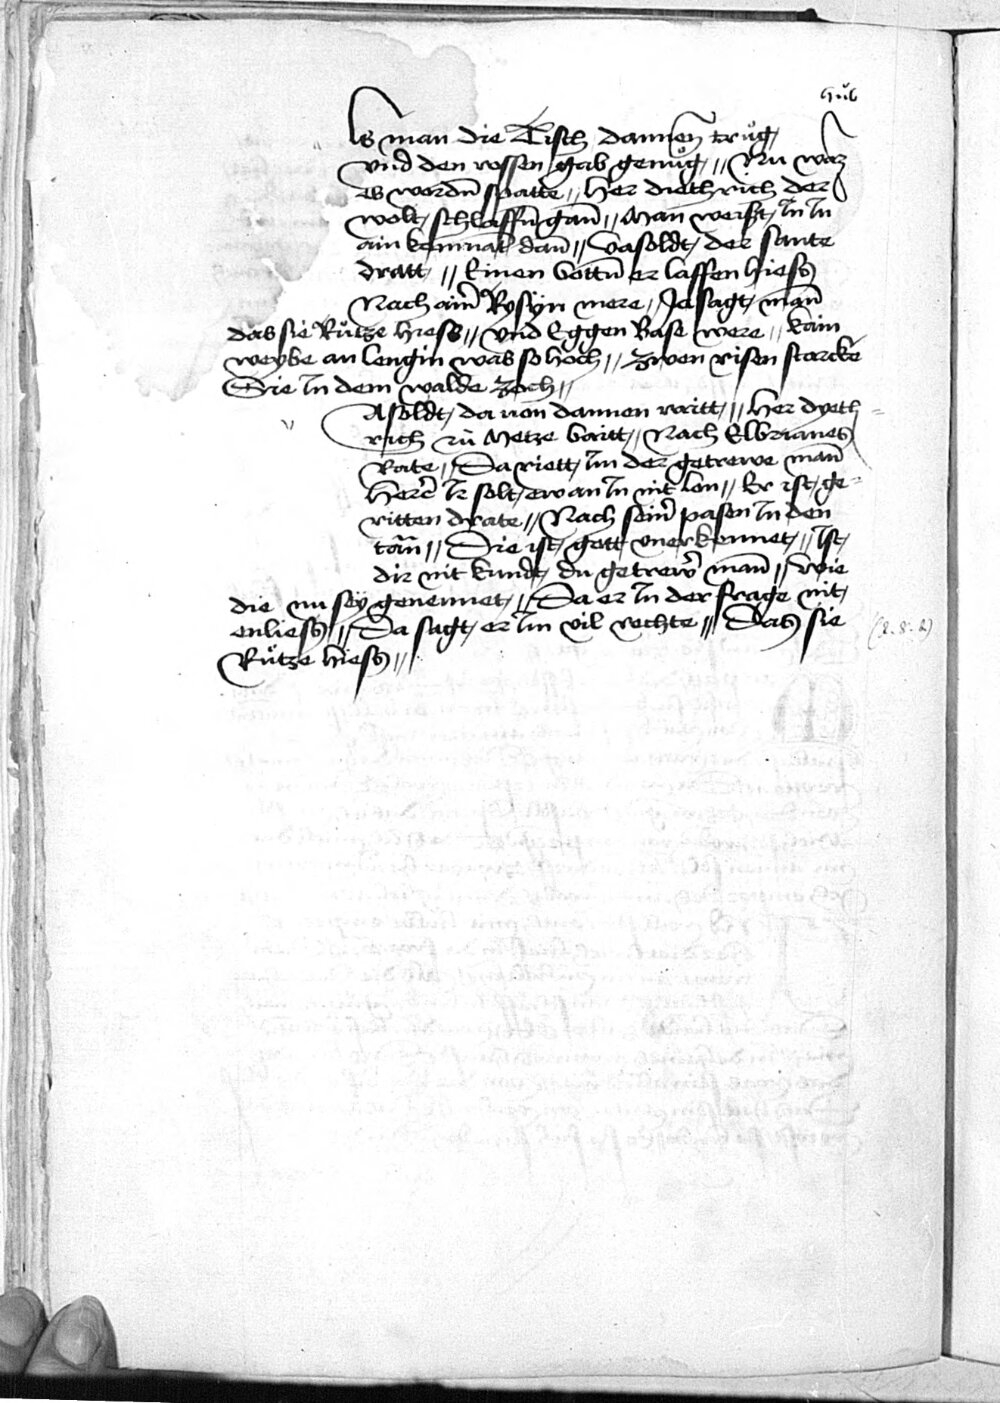 hůb
ls man die Tisch dannen trůg /
vnd den rossen gab genůg // Nu waz
es wordn̄ spatte // Her dietherich der
wolt / schlaffn̄ gan̄ // Man weißt / In In
ain kemnat dan̄ // Vasoldt / der sante
dratt / // Einen bottn̄ er lassen hiess
Nach ain̄ Rysyn mere / Ja sagt / man̄
das sie Růtze hiess // vnd Eggen Base were // kain
weybe an lengin was so hoch // Zwen risen starcke
Sie In dem walde zoch //
Asoldt / da von dannen raitt / // Her dyeth-
rich zů Metze baitt / Nach Elbrianes
Rate // Da riett / Im der getrewe man̄
Herr̄ Ir solt / ewan In nit lon // Er ist / ge-
ritten drate // Nach sein̄ pasen In den
tan̄ // Die ist / gott vnerkennet / // Ist /
dir nit kundt / du getrewr̄ man̄ // wie
die nu sey genennet / // Da er In der frage nit /
enliess // Da sagt / er Im vil rechte // Das sie
Růtze hiess //